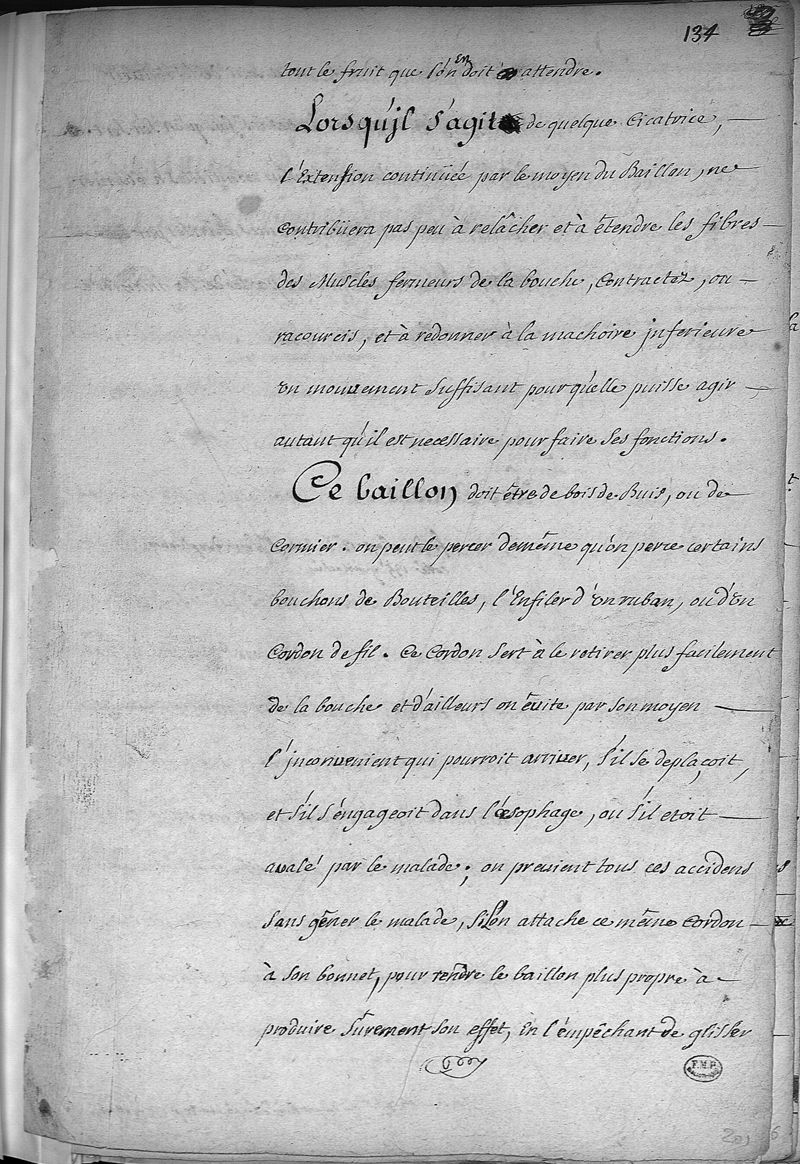 134
tout le fruit que l'on En doit attendre.
Lorsqu'jl s'agit de quelque Cicatrice, —
l'Extension continüée par le moyen du Baillon, ne
contribüera pas peu à relâcher et à étendre les fibres —
des Muscles fermeurs de la bouche, Contractez, ou —
racourcis, et à redonner à la machoire jnferieure
un mouvement suffisant pour qu'elle puisse agir —
autant qu'il est necessaire pour faire ses fonctions.
Ce baillon doit être de bois de Buis, ou de
Cormier. on peut le percer de même qu'on perce certains
bouchons de Bouteilles, l'Enfiler d'un ruban, ou d'un
Cordon de fil. Ce Cordon sert à le retirer plus facilement
de la bouche et d'ailleurs on évite par son moyen —
l'jnconvenient qui pourroit arriver, s'il se deplaçoit,
et s'il s'engageoit dans l'œsophage, ou s'il etoit —
avalé par le malade; on previent tous ces accidens
sans gêner le malade, si l'on attache ce même Cordon —
à son bonnet, pour rendre le baillon plus propre à —
produire sûrement son effet, En l'empêchant de glisser
F.M.P.